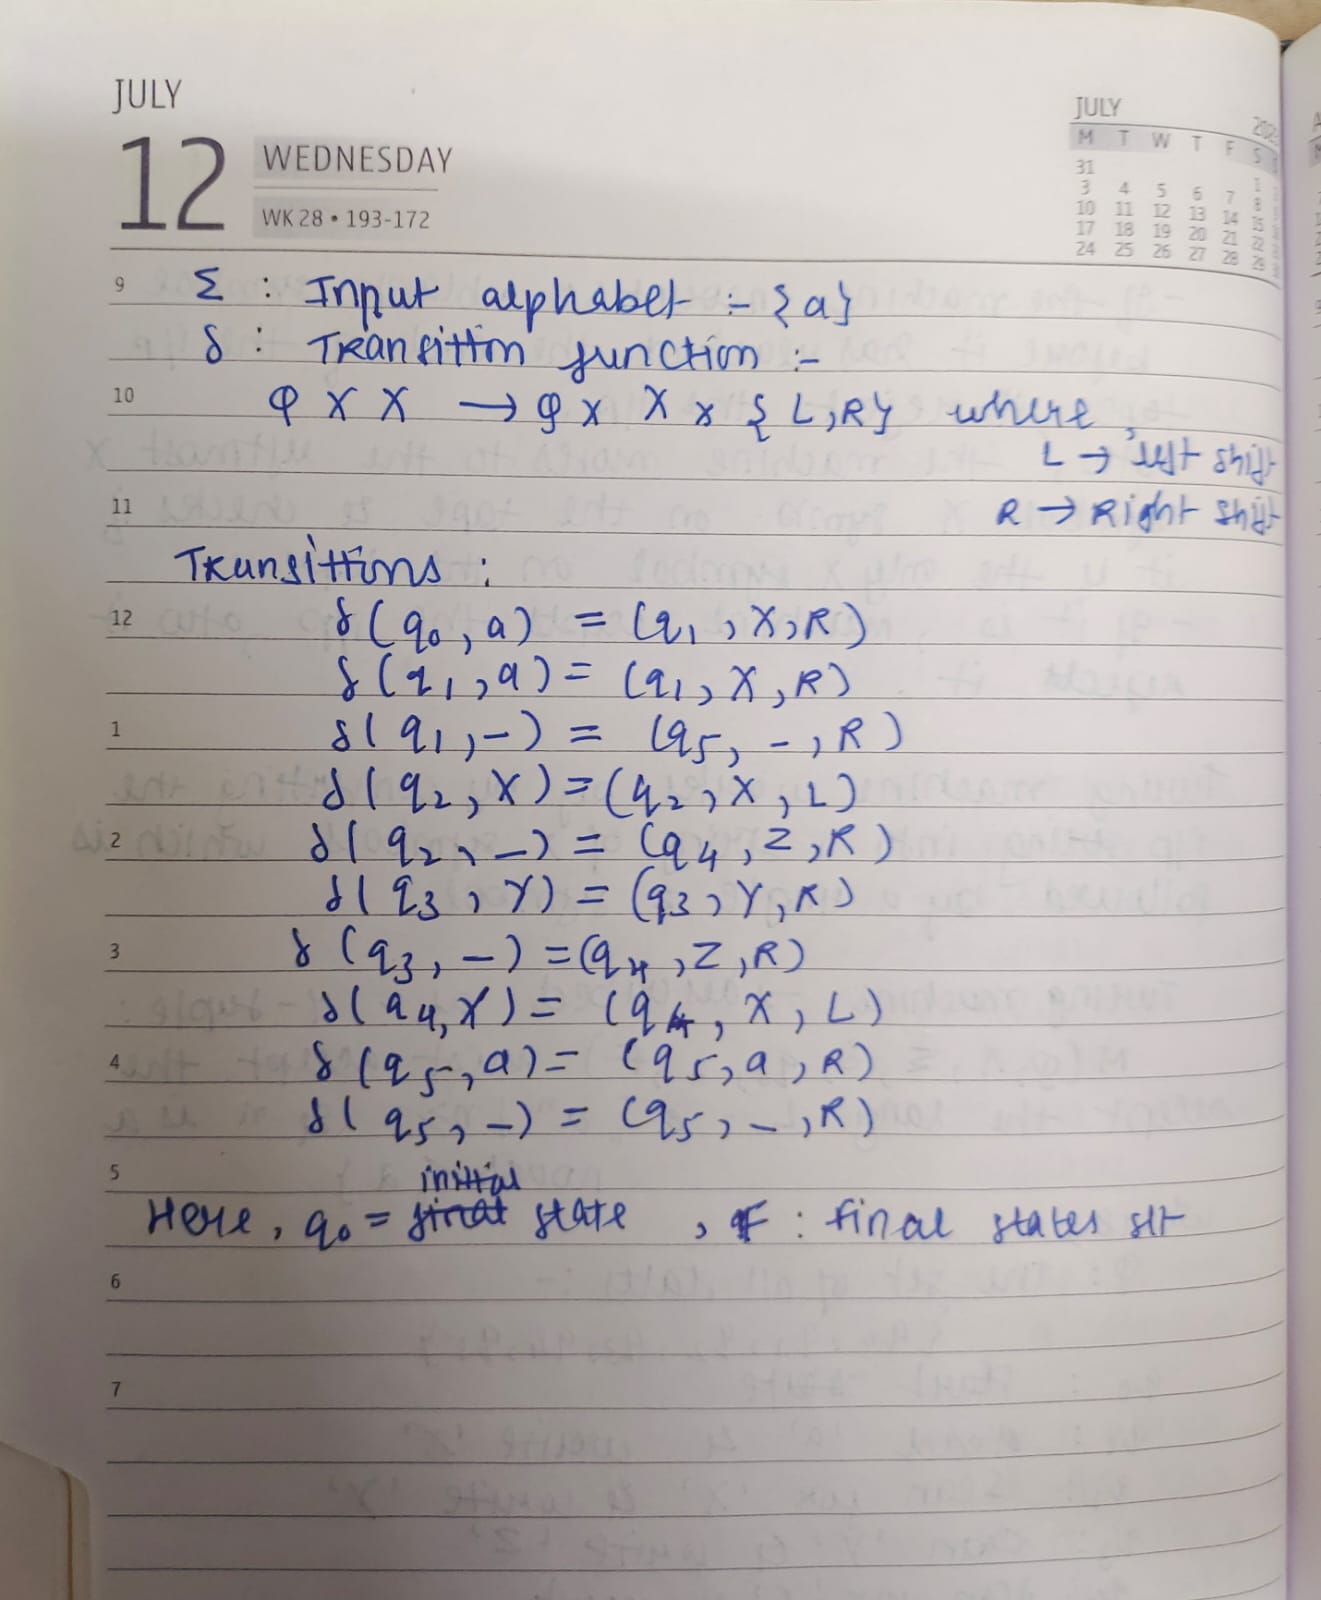 JULY
12 WEDNESDAY
WK 28 • 193-172
JULY
M T W T F S
31 1
3 4 5 6 7 8
10 11 12 13 14 15
17 18 19 20 21 22
24 25 26 27 28 29
9 Σ : Input alphabet :- {a}
δ : Transittion function :-
10 Q X X → Q X X x { L, R} where,
L → left shift
11 R → Right shift
Transittions :
12 δ(q₀, a) = (q₁, X, R)
δ(q₁, a) = (q₁, X, R)
1 δ(q₁, -) = (q₅, -, R)
δ(q₂, X) = (q₂, X, L)
2 δ(q₂, -) = (q₄, Z, R)
δ(q₃, Y) = (q₃, Y, R)
3 δ(q₃, -) = (q₄, Z, R)
δ(q₄, X) = (q₄, X, L)
4 δ(q₅, a) = (q₅, a, R)
δ(q₅, -) = (q₅, -, R)
5 initial
Here, q₀ = final state, F : final states set
6
7